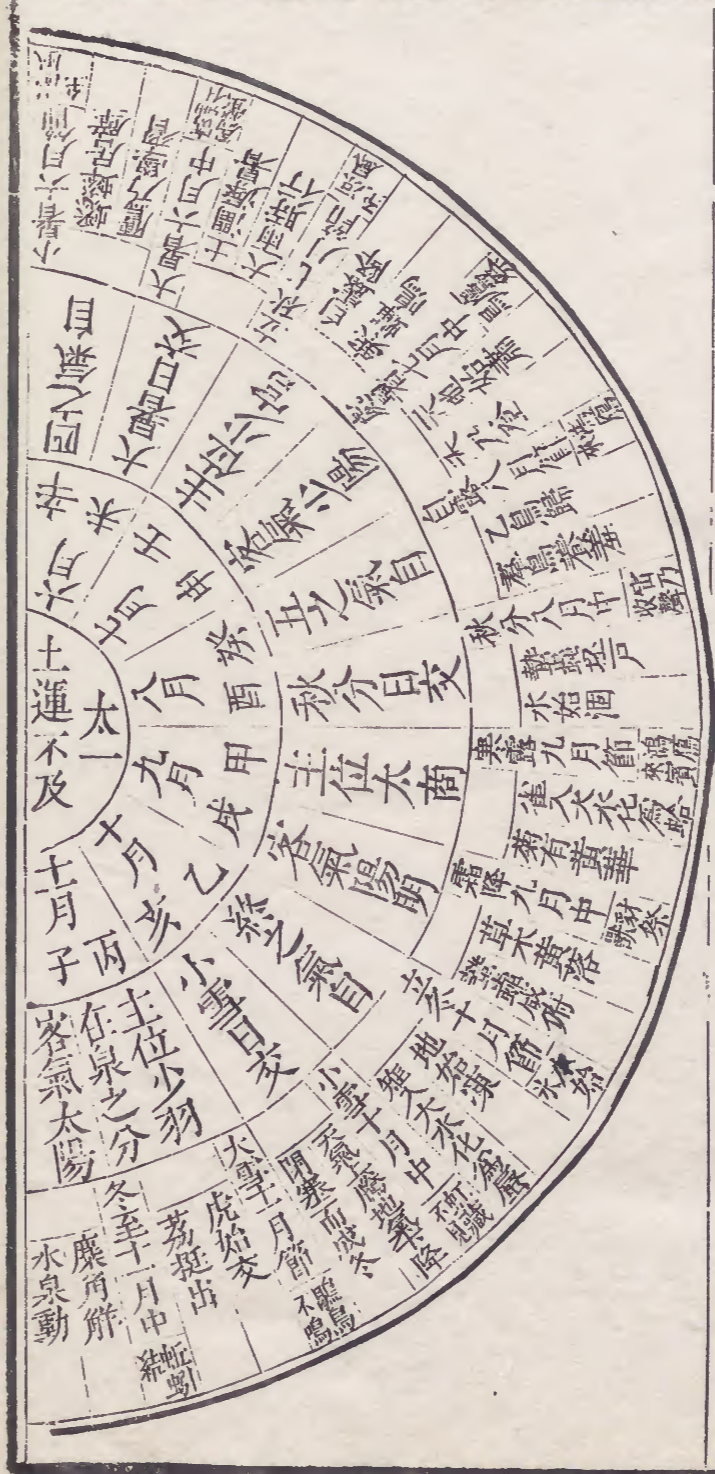 土運不及
太一
六月 辛未
七月 壬申
八月 癸酉
九月 甲戌
十月 乙亥
十一月 丙子
四之氣自
大暑日交
主位少宮
客氣少陽
五之氣自
秋分日交
主位太商
客氣陽明
終之氣自
小雪日交
主位少羽
在泉之分
客氣太陽
小暑六月節
蟋蟀居壁
鷹乃學習
大暑六月中
土潤溽暑
大雨時行
立秋七月節
白露降
寒蟬鳴
處暑七月中
天地始肅
禾乃登
白露八月節
乙鳥歸
羣鳥養羞
秋分八月中
雷乃收聲
蟄蟲坯戶
水始涸
寒露九月節
鴻鴈來賓
雀入大水化爲蛤
菊有黃華
霜降九月中
豺祭獸
草木黃落
蟄蟲咸俯
立冬十月節
水始冰
地始凍
雉入大水化爲蜃
小雪十月中
虹藏不見
天氣上騰地氣下降
閉塞而成冬
大雪十一月節
鶡鳥不鳴
虎始交
荔挺出
冬至十一月中
蚯蚓結
麋角解
水泉動